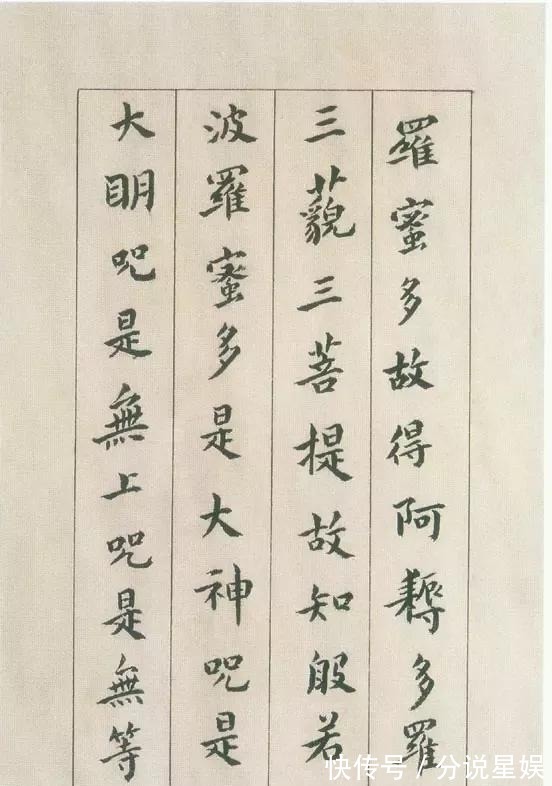 羅蜜多故得阿耨多羅
三藐三菩提故知般若
波羅蜜多是大神咒是
大明咒是無上咒是無等
快传号/分说星娱